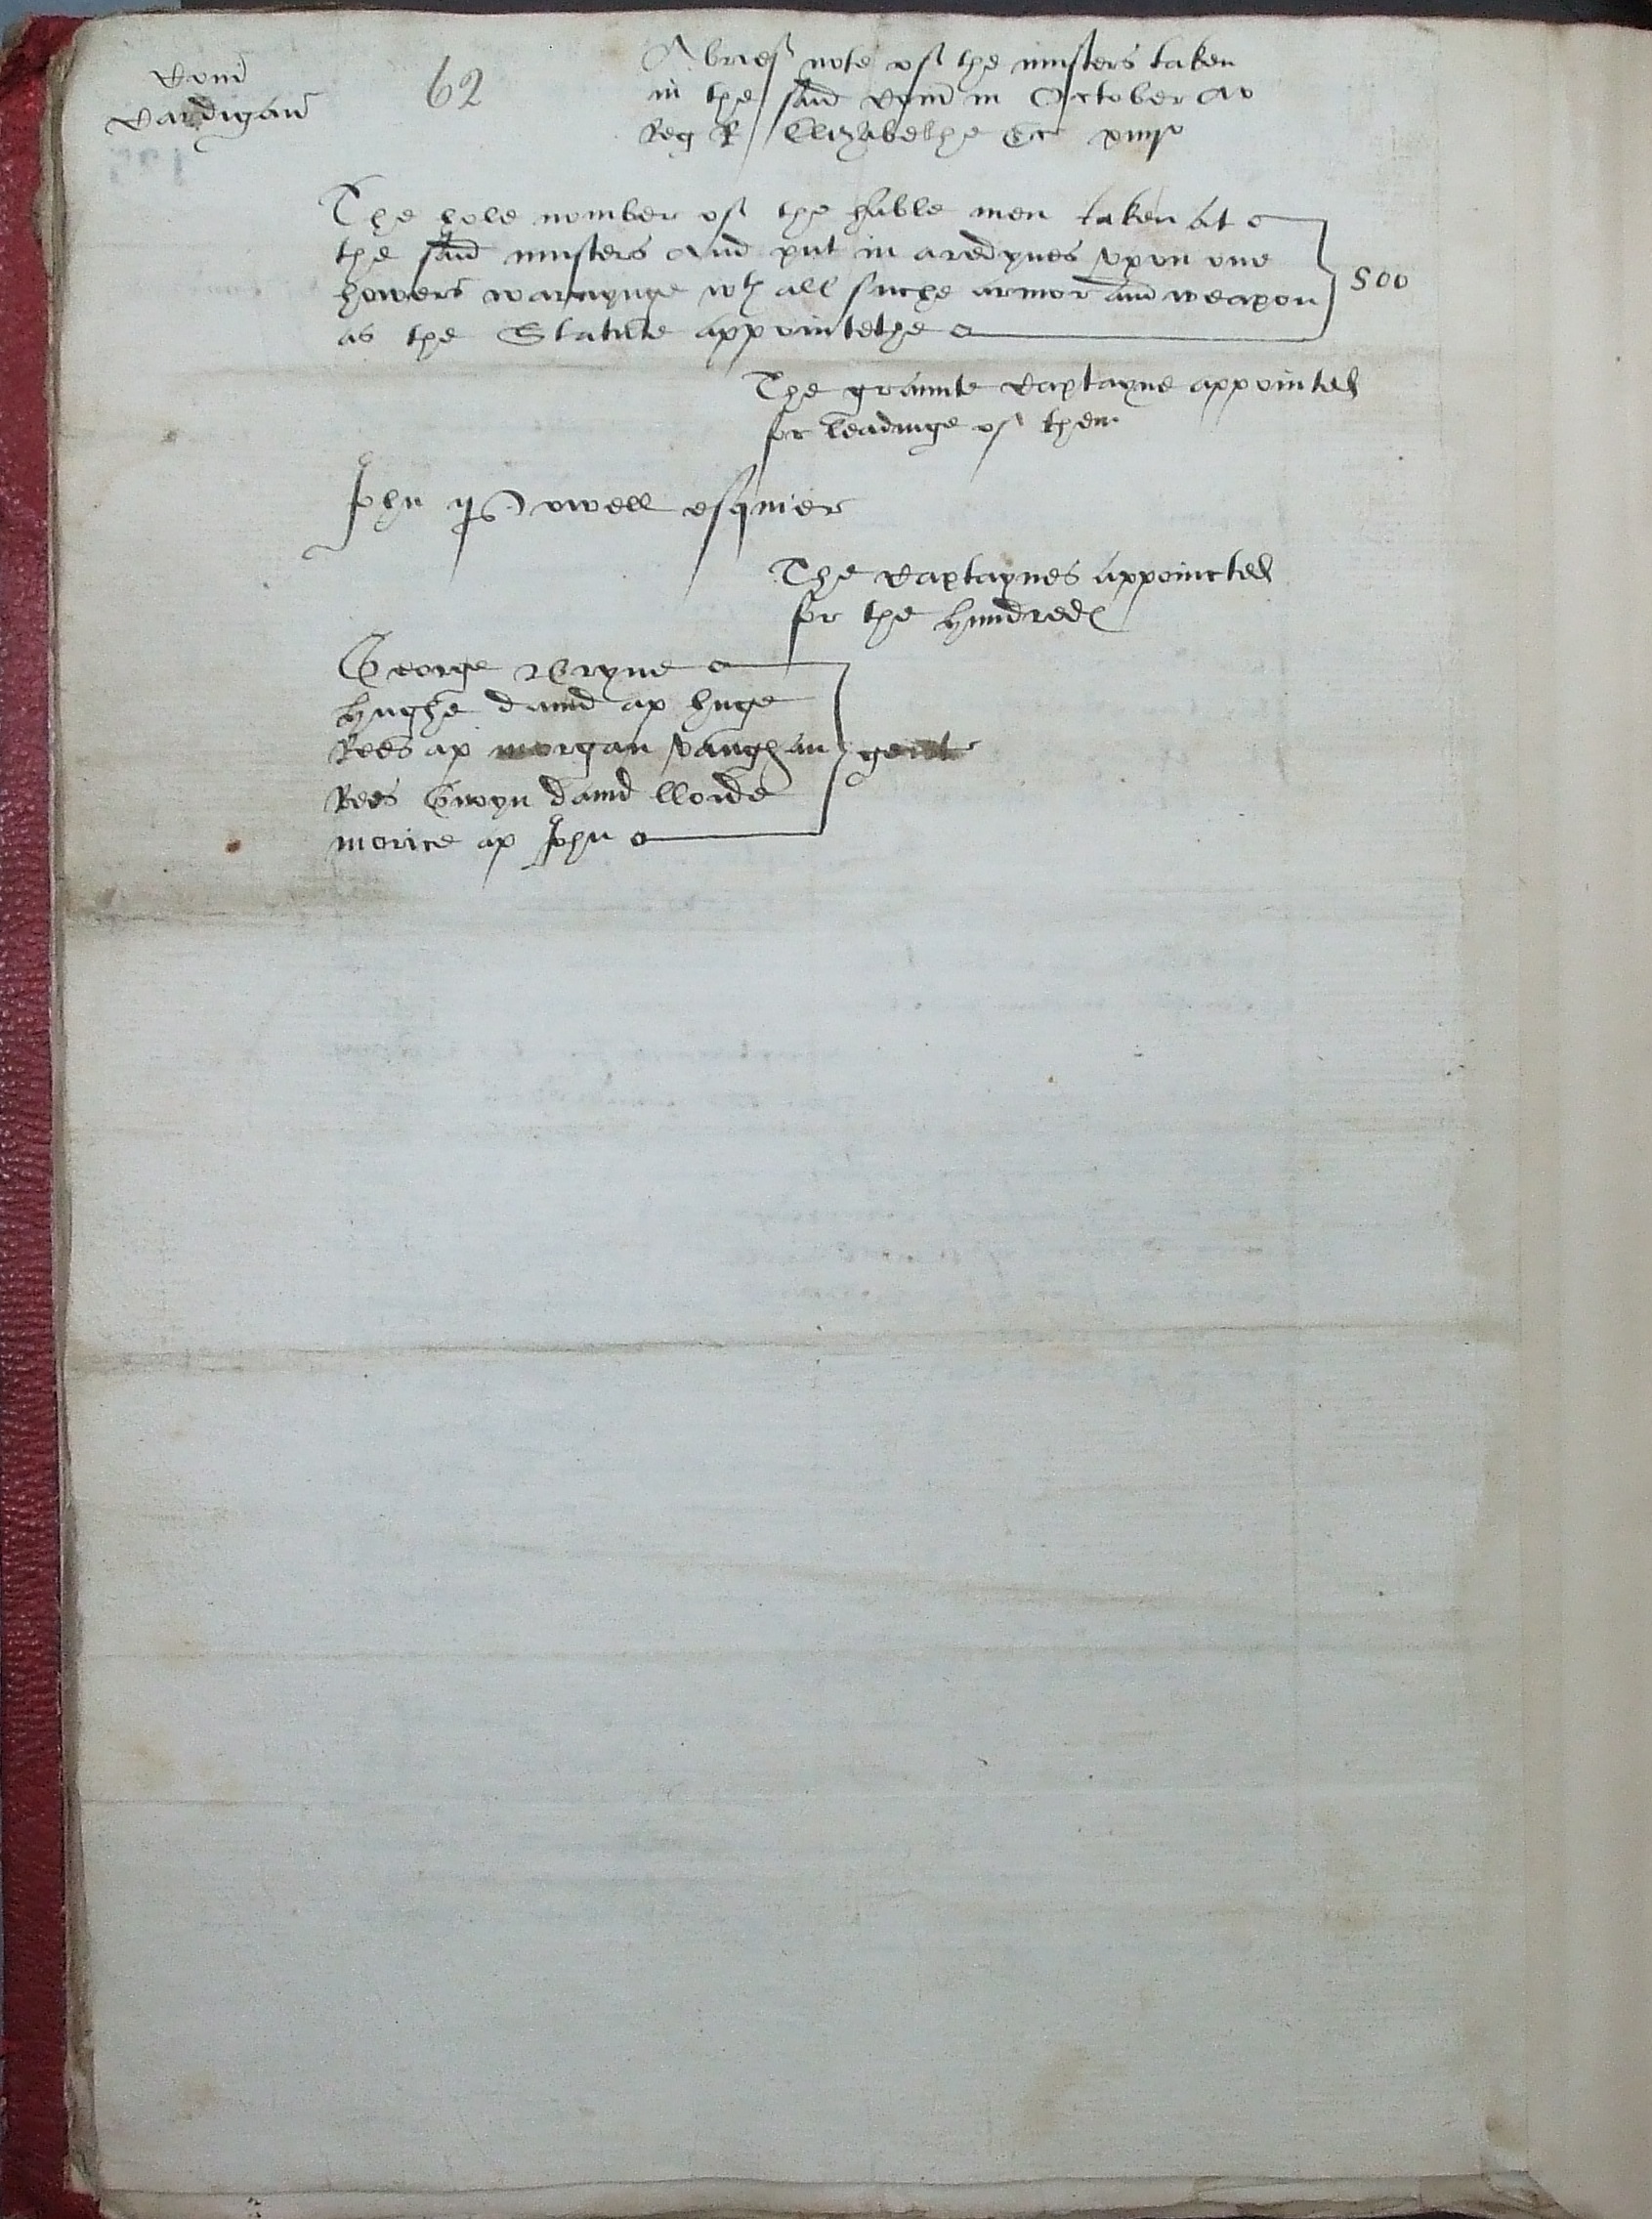 Com
Cardigan
62
A brief note of the musters taken
in the said Com in October Ao
Reg R Elizabethe &c
The hole nomber of the hable men taken at
the said musters And put in aredynes vpon one
howers warnynge wth all suche armor and weapon
as the Statute appointethe
500
The graunte Captayne appointed
for leadinge of them
John powell esquier
The Captaynes appoincted
for the hundred
George
hughe dauid ap huge
Rees ap morgan vaughan
gent
Rees Gwyn dauid lloide
morice ap John